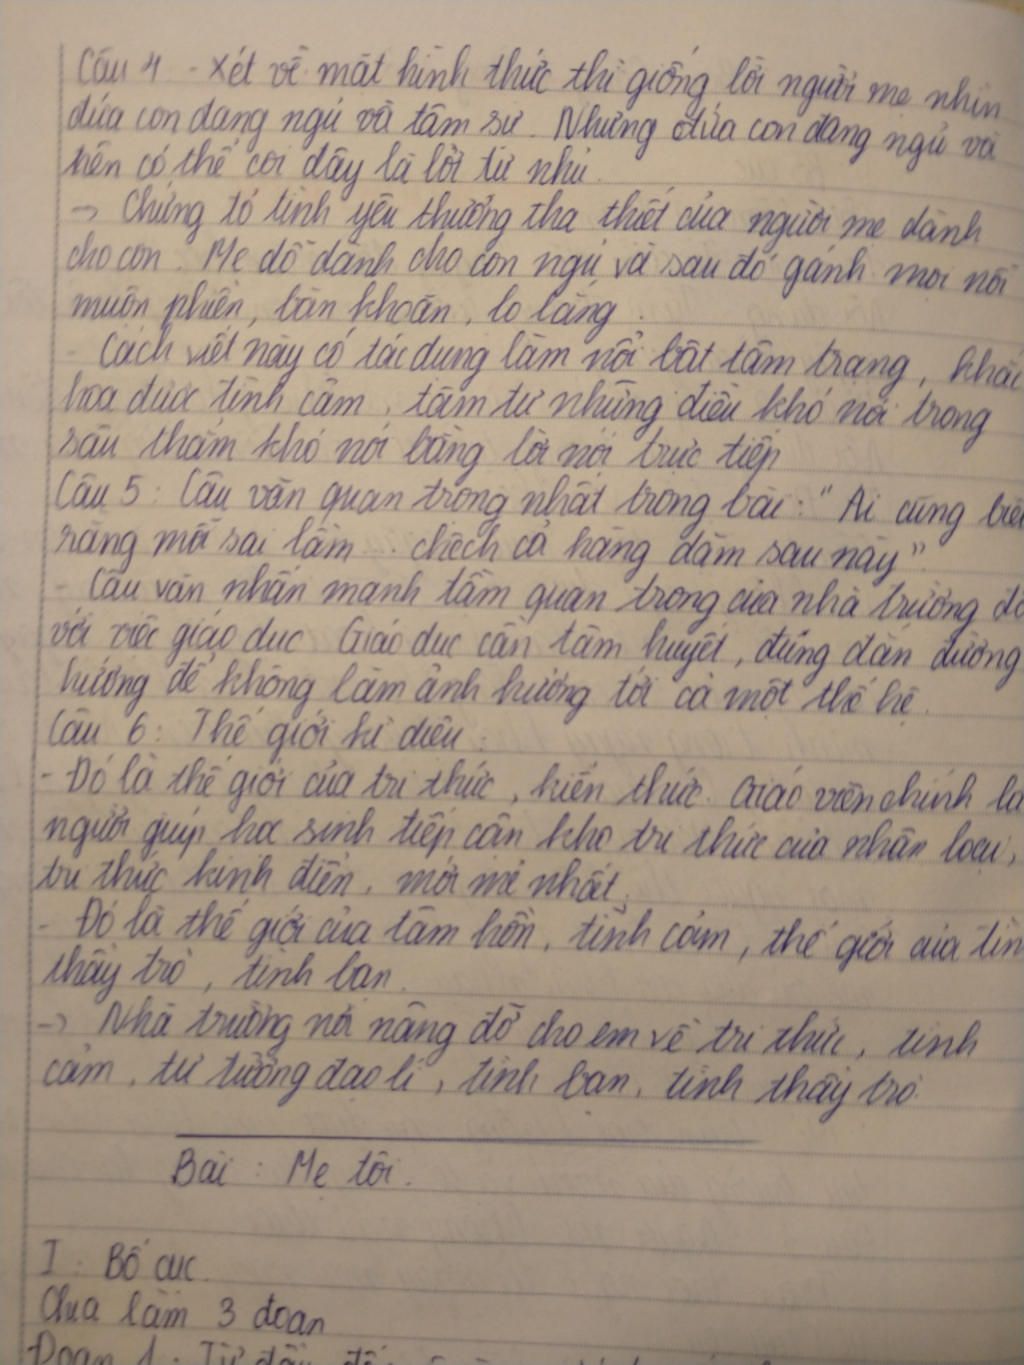 Câu 4 - Xét về mặt hình thức thì giống lời người mẹ nhìn
đứa con đang ngủ và tâm sự. Nhưng đứa con đang ngủ và
nên có thể coi đây là lời tự nhủ.
→ Chứng tỏ tình yêu thương tha thiết của người mẹ dành
cho con. Mẹ dỗ dành cho con ngủ và sau đó gánh mọi nỗi
muộn phiền, băn khoăn, lo lắng.
- Cách viết này có tác dụng làm nổi bật tâm trạng, khắc
họa được tình cảm, tâm tư những điều khó nói trong
sâu thẳm khó nói bằng lời nói trực tiếp
Câu 5: Câu văn quan trọng nhất trong bài: "Ai cũng biết
rằng mỗi sai lầm... chệch cả hàng dặm sau này".
- Câu văn nhấn mạnh tầm quan trọng của nhà trường đối
với việc giáo dục Giáo dục cần tâm huyết, đúng đắn đường
hướng để không làm ảnh hưởng tới cả một thế hệ.
Câu 6: Thế giới kì diệu:
- Đó là thế giới của tri thức, kiến thức. Giáo viên chính là
người giúp học sinh tiếp cận kho tri thức của nhân loại,
tri thức kinh điển, mới mẻ nhất.
- Đó là thế giới của tâm hồn, tình cảm, thế giới của tình
thầy trò, tình bạn.
→ Nhà trường nơi nâng đỡ cho em về tri thức, tình
cảm, tư tưởng đạo lí, tình bạn, tình thầy trò.
Bài: Mẹ tôi.
I. Bố cục.
Chia làm 3 đoạn
Đoạn 1: Từ đầu